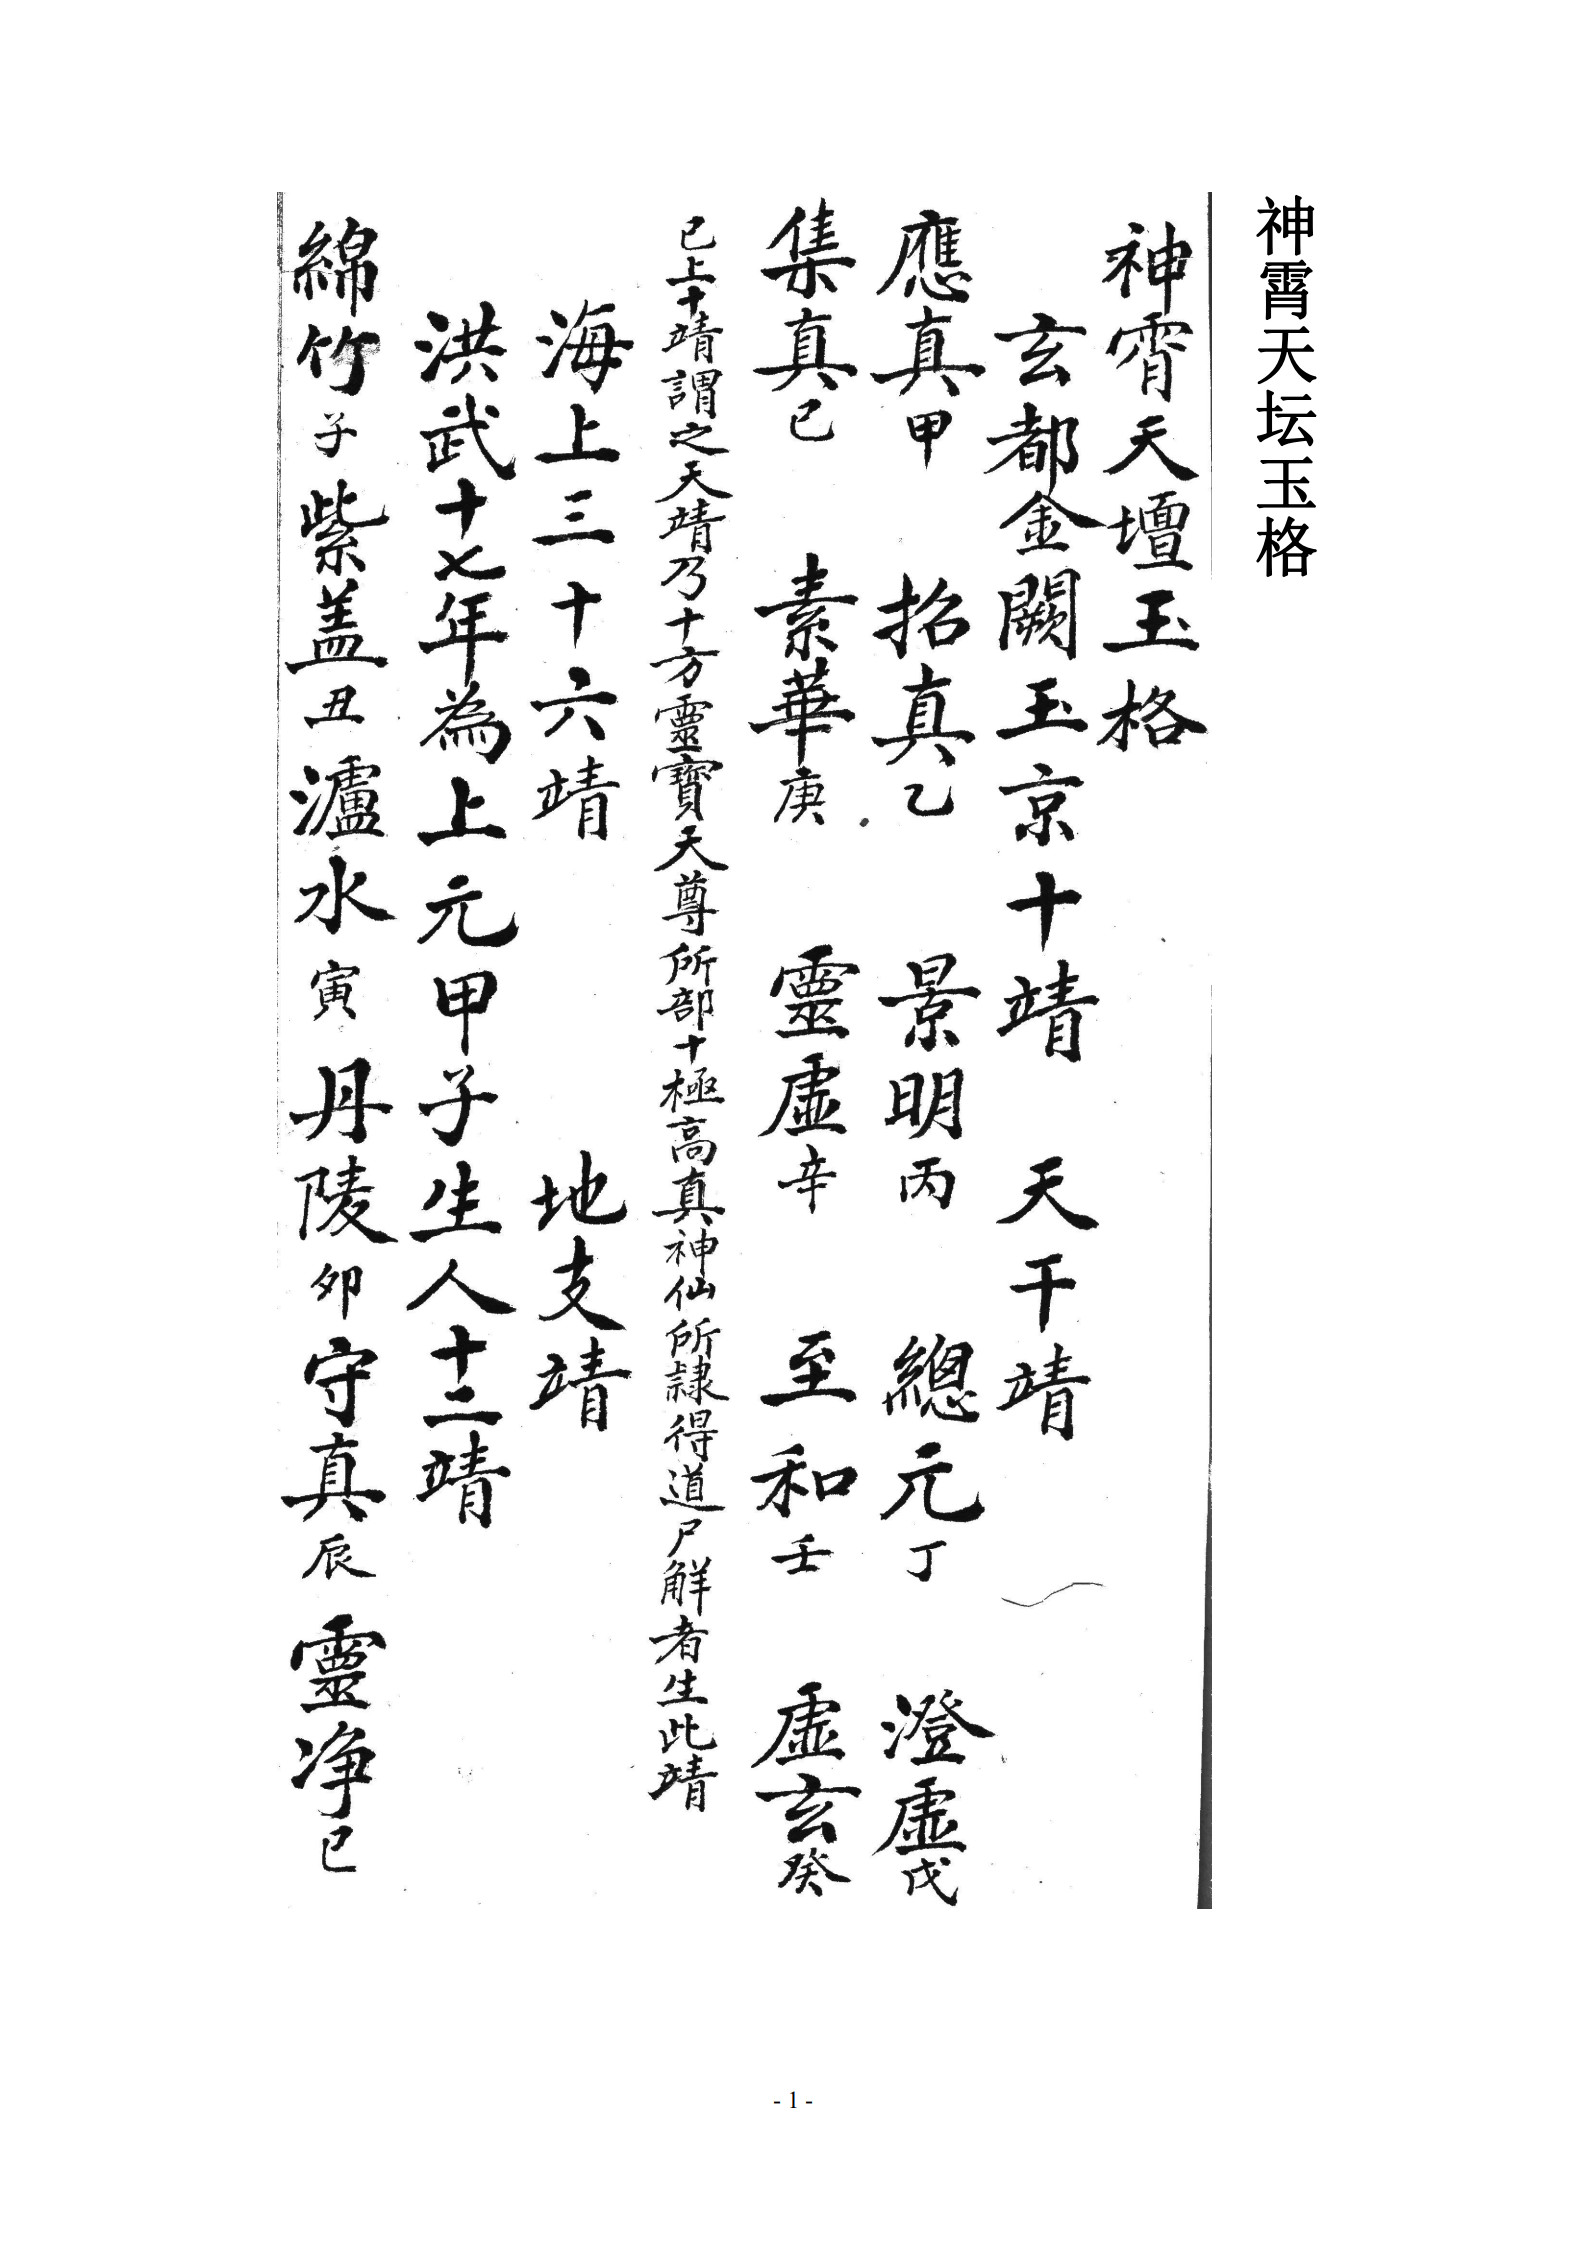 神霄天坛玉格
神霄天壇玉格
玄都金闕玉京十靖 天干靖
應真甲 招真乙 景明丙 總元丁 澄虛戊
集真己 素華庚 靈虛辛 至和壬 虛玄癸
已上十靖謂之天靖乃十方靈寶天尊所部十極高真神仙所隸得道尸解者生此靖
海上三十六靖 地支靖
洪武十七年為上元甲子生人十二靖
綿竹子 紫盖丑 瀘水寅 丹陵卯 守真辰 靈净巳
- 1 -